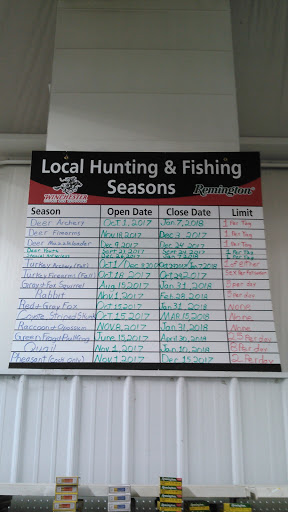 Local Hunting & Fishing
Seasons
WINCHESTER
Remington
Season Open Date Close Date Limit
Deer Archery Oct 1, 2017 Jan 7, 2018 1 Per Tag
Deer Firearms Nov 18, 2017 Dec 3, 2017 1 Per Tag
Deer Muzzleloader Dec 9, 2017 Dec 24, 2017 1 Per Tag
Deer Youth
Turkey Archery (Fall) Oct 1
Turkey Firearms (Fall) Oct 18, 2017
Gray + Fox Squirrel Aug 15, 2017 Jan 31, 2018 5 per day
Rabbit Nov 1, 2017 Feb 28, 2018 5 Per day
Red + Gray Fox Oct 15, 2017 Jan 31, 2018 None
Coyote Striped Skunk Oct 15, 2017 Mar 15, 2018 None
Raccoon + Opossum Nov 8, 2017 Jan 31, 2018 None
Green Frog + Bullfrog June 15, 2017 April 30, 2018 25 Per day
Quail Nov 1, 2017 Jan 10, 2018 8 Per day
Pheasant (cocks only) Nov 1, 2017 Dec 15, 2017 2 Per day